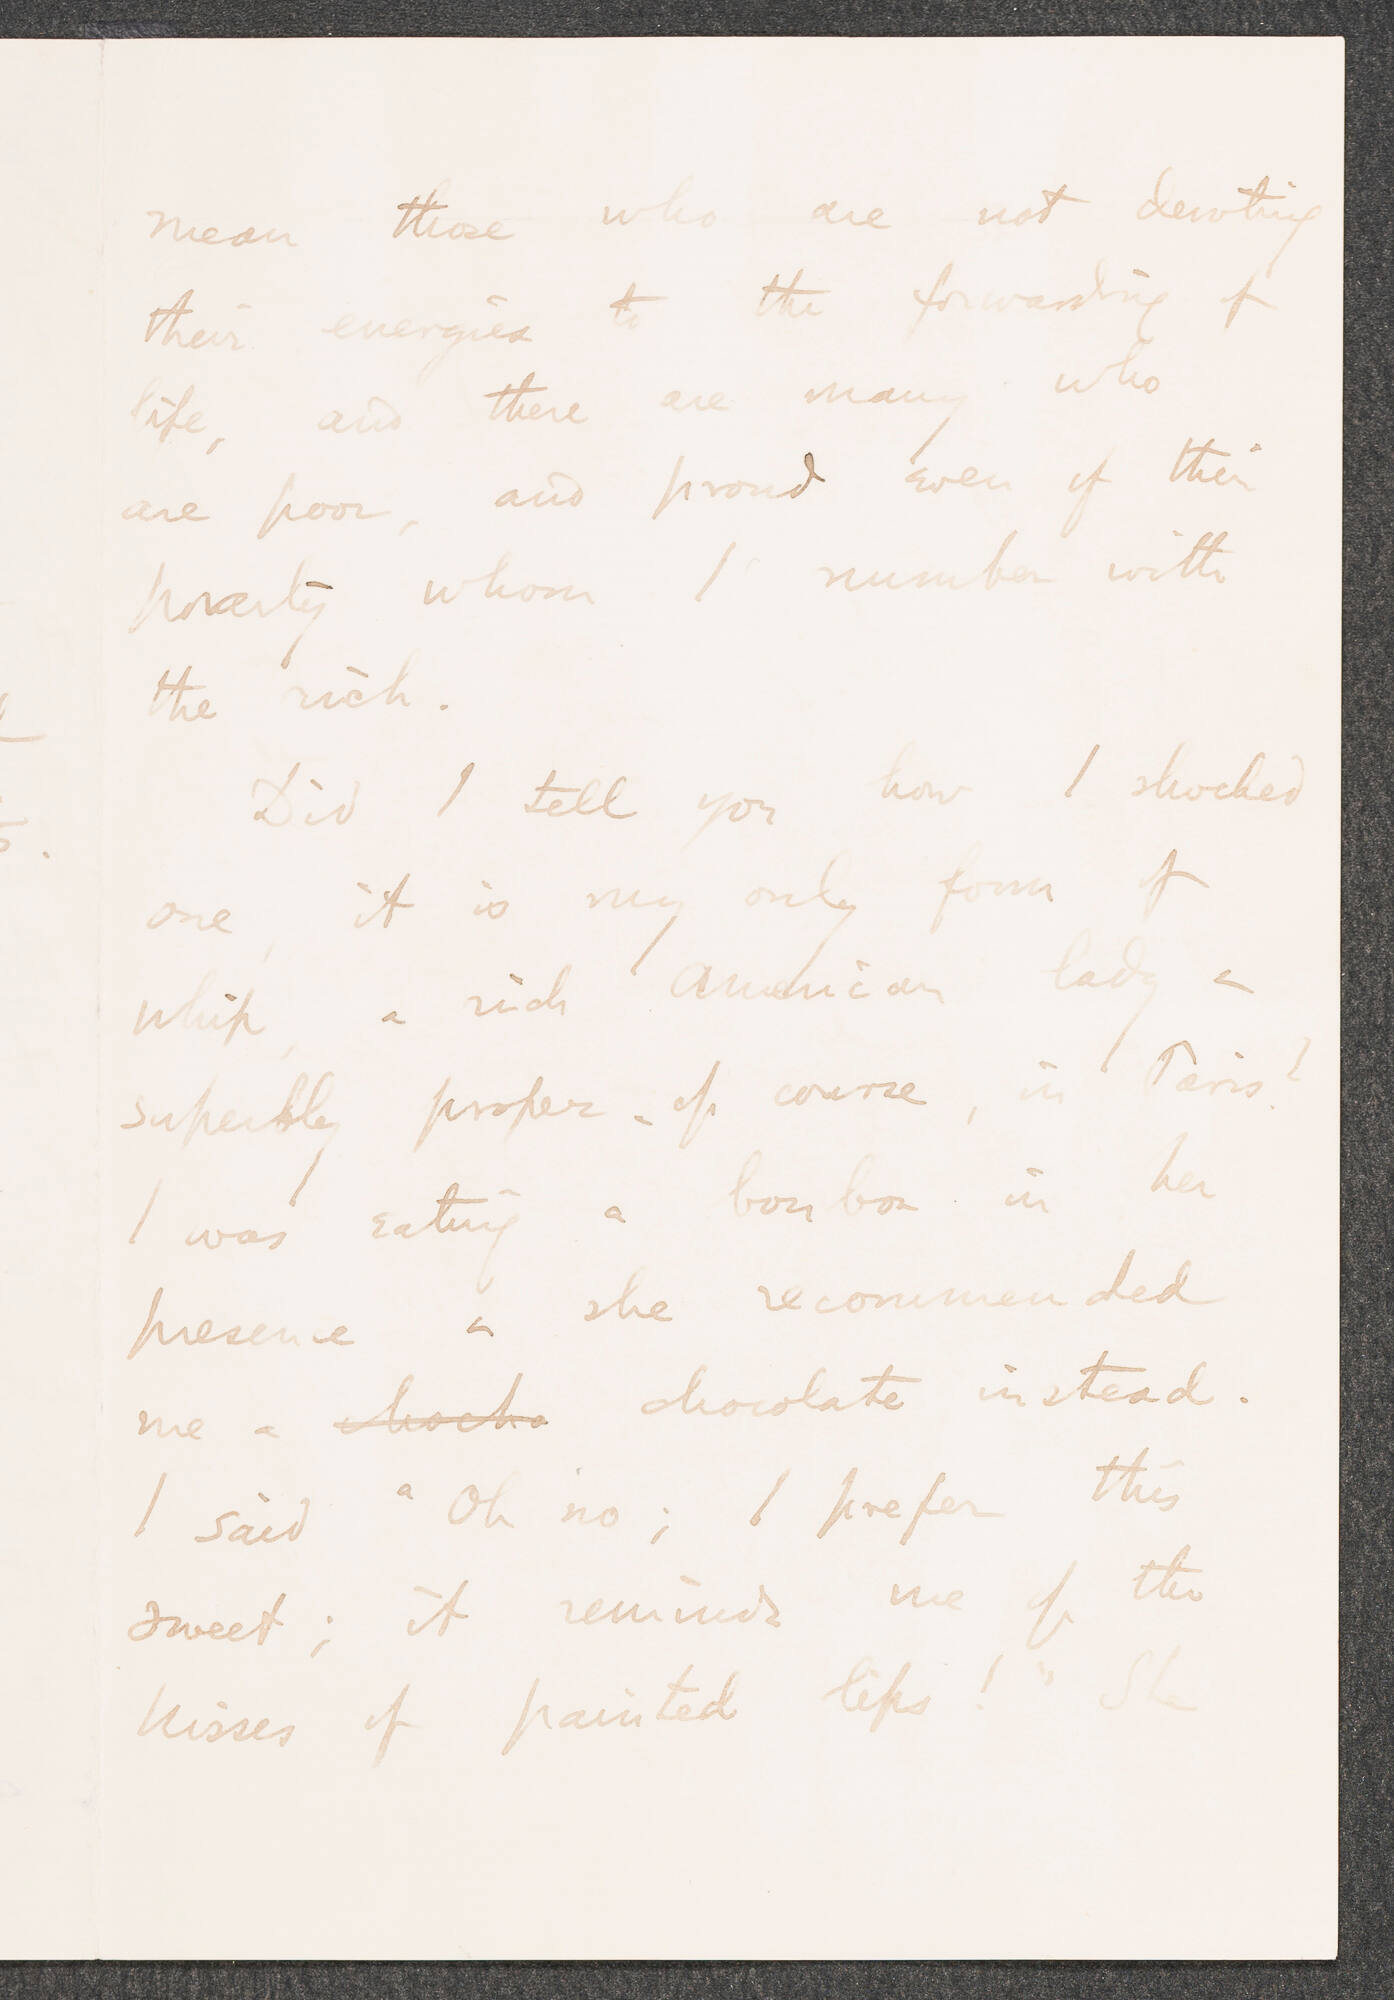 mean those who are not devoting
their energies to the forwarding of
life, and there are many who
are poor, and proud even of their
poverty whom I number with
the rich.
Did I tell you how I shocked
one, it is my only form of
whip, a rich American lady &
superbly proper - of course, in Paris?
I was eating a bonbon in her
presence & she recommended
me a chocha chocolate instead.
I said "Oh no; I prefer this
sweet; it reminds me of the
kisses of painted lips!" She